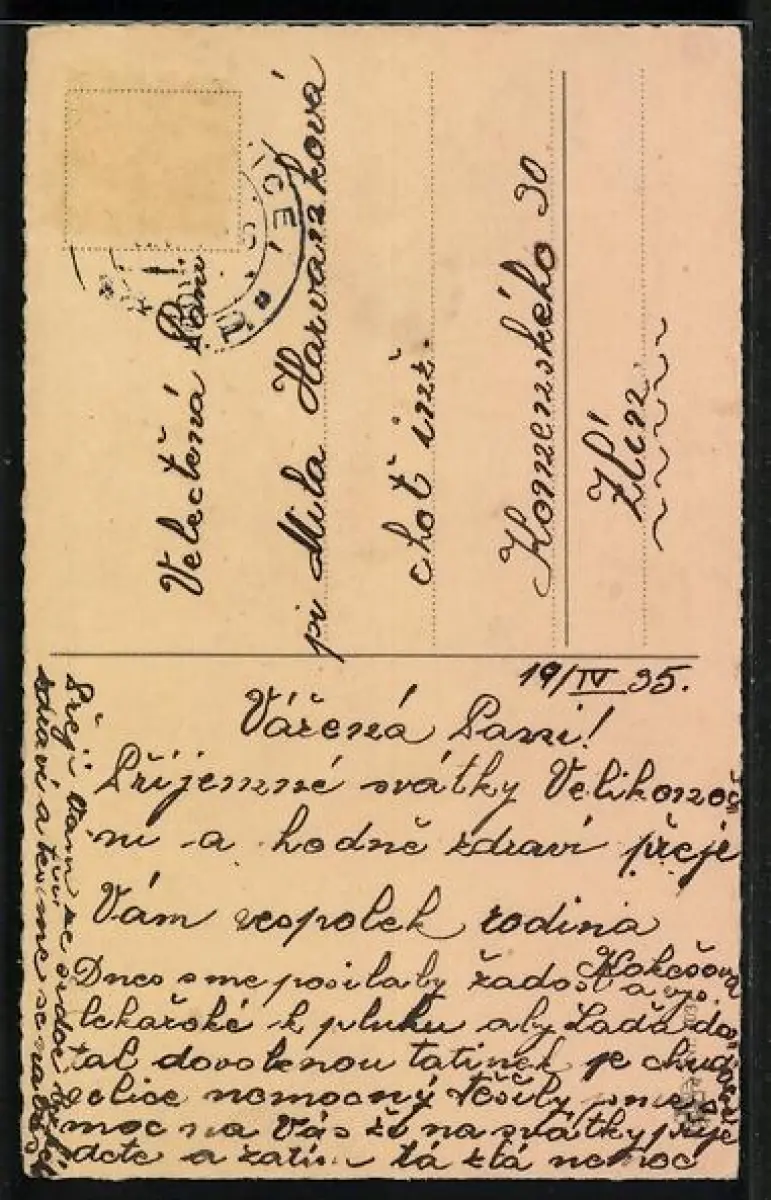 Velectěná Paní
pí Míla Harvanková
choť inž.
Komenského 30
Zlín
19/IV 35.
Vážená Paní!
Příjemné svátky Velikonoč
ní a hodně zdraví přeje
Vám vespolek rodina
Kokešova
Dnes sme posílaly žádost a vys.
lékařské k pluku aby Laďa dos
tal dovolenou tatínek je chudák
velice nemocný těšily sme se
moc na Vás že na svátky přije
dete a zatím ta zlá nemoc
Přeji Vám ze srdce
zdraví a těšíme se